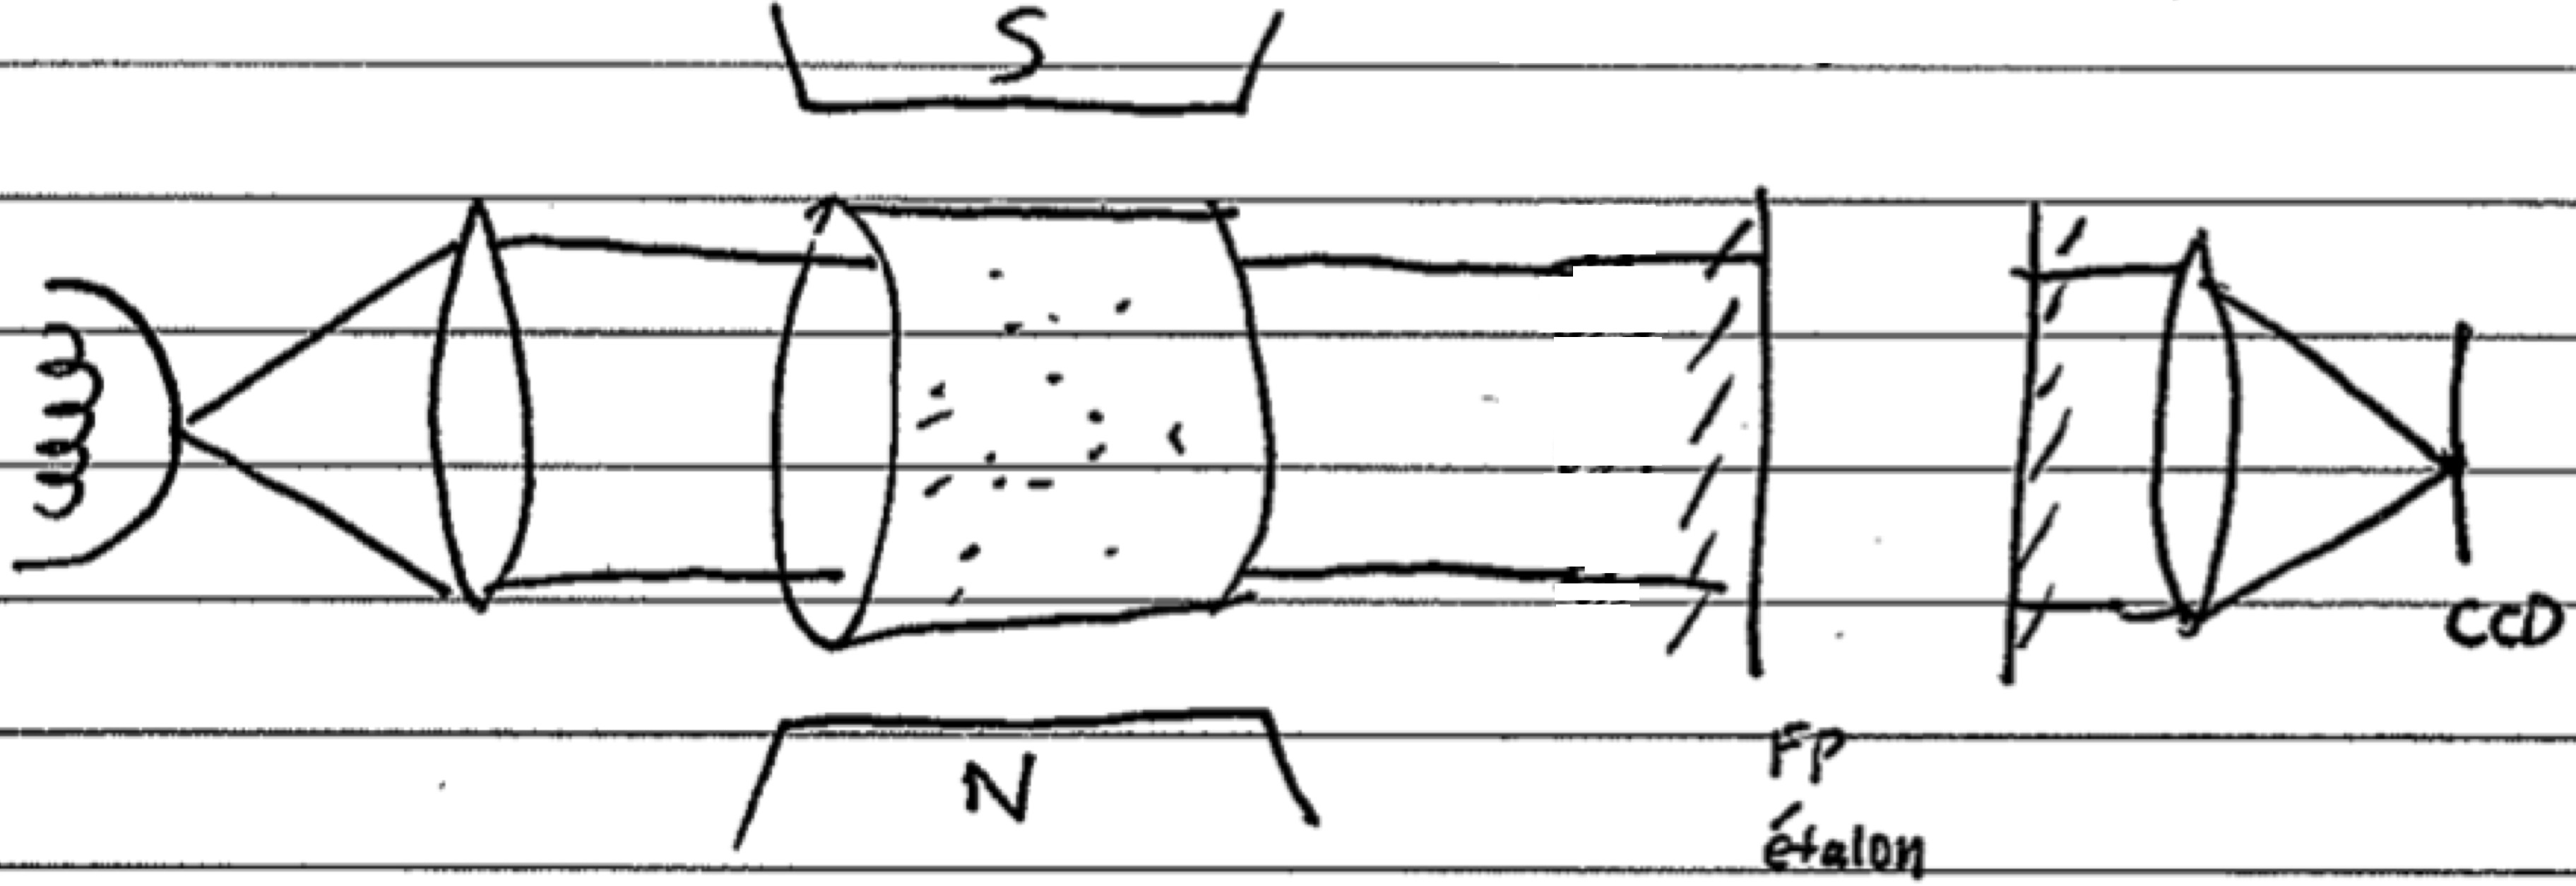 S
N
FP
étalon
CCD